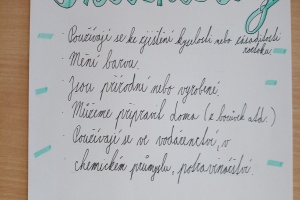 · Používají se ke zjištění kyselosti nebo zásaditosti
roztoku.
· Mění barvu.
· Jsou přírodní nebo vyrobené.
· Můžeme připravit doma (z borůvek atd.)
· Používají se ve vodárenství, v
chemickém průmyslu, potravinářství.